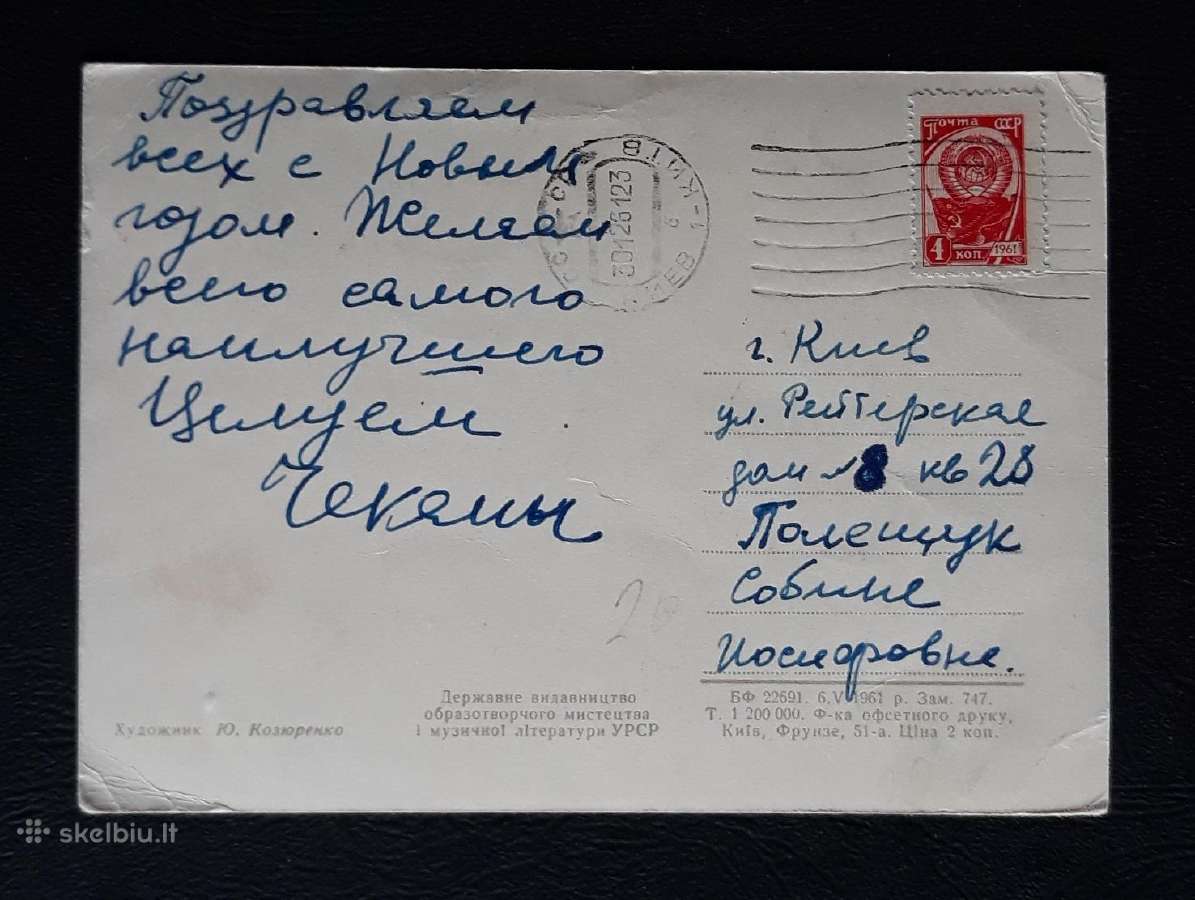 Поздравляем
всех с Новым
годом. Желаем
всего самого
наилучшего
Целуем
Чеканы
КИЇВ
30126123
ПОЧТА СССР
4 КОП. 1961
г. Киев
ул. Рейтерская
дом № 8 кв 28
Полещук
Собине
Иосифовне.
Художник Ю. Козюренко
Державне видавництво
образотворчого мистецтва
і музичної літератури УРСР
БФ 22691. 6.V 1961 р. Зам. 747.
Т. 1 200 000. Ф-ка офсетного друку,
Київ, Фрунзе, 51-а. Ціна 2 коп.
skelbiu.lt